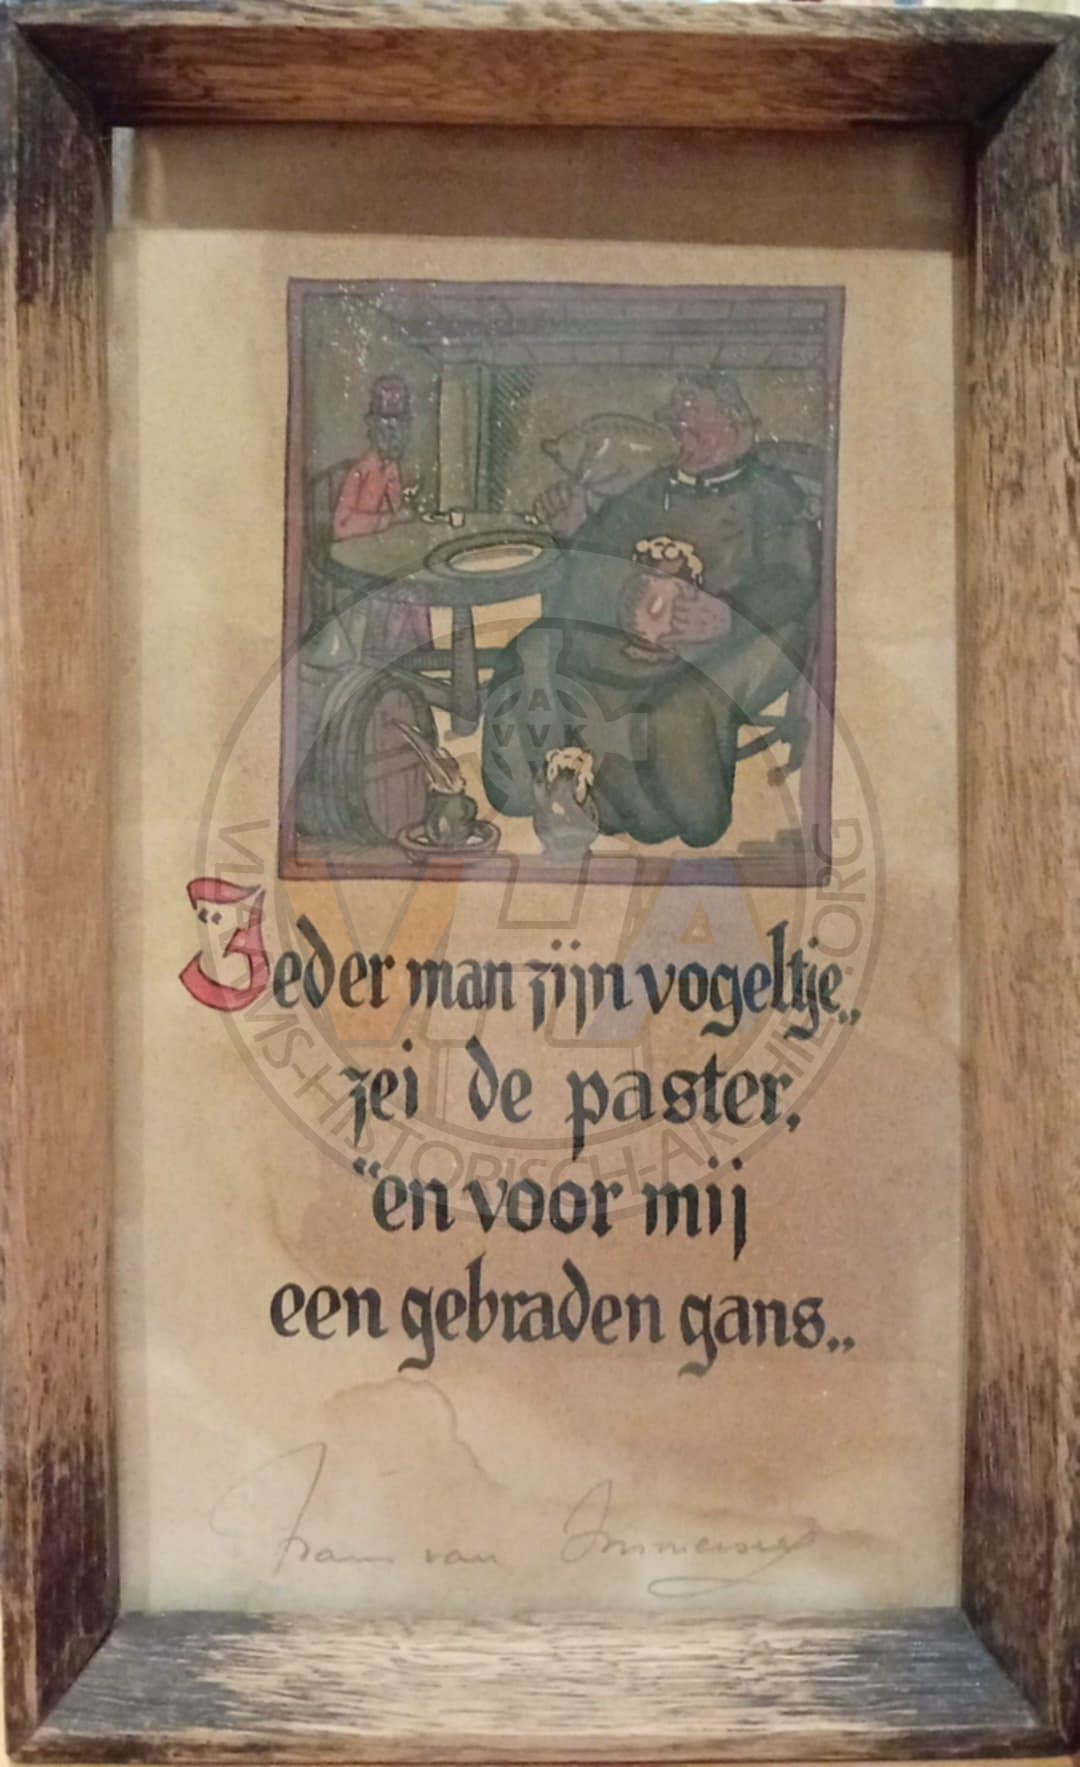 "Ieder man zijn vogeltje,,
zei de paster,
"en voor mij
een gebraden gans.,,
Frans van Immerseel
AVVK
VVK
VHA
VLAAMS-HISTORISCH-ARCHIEF.ORG